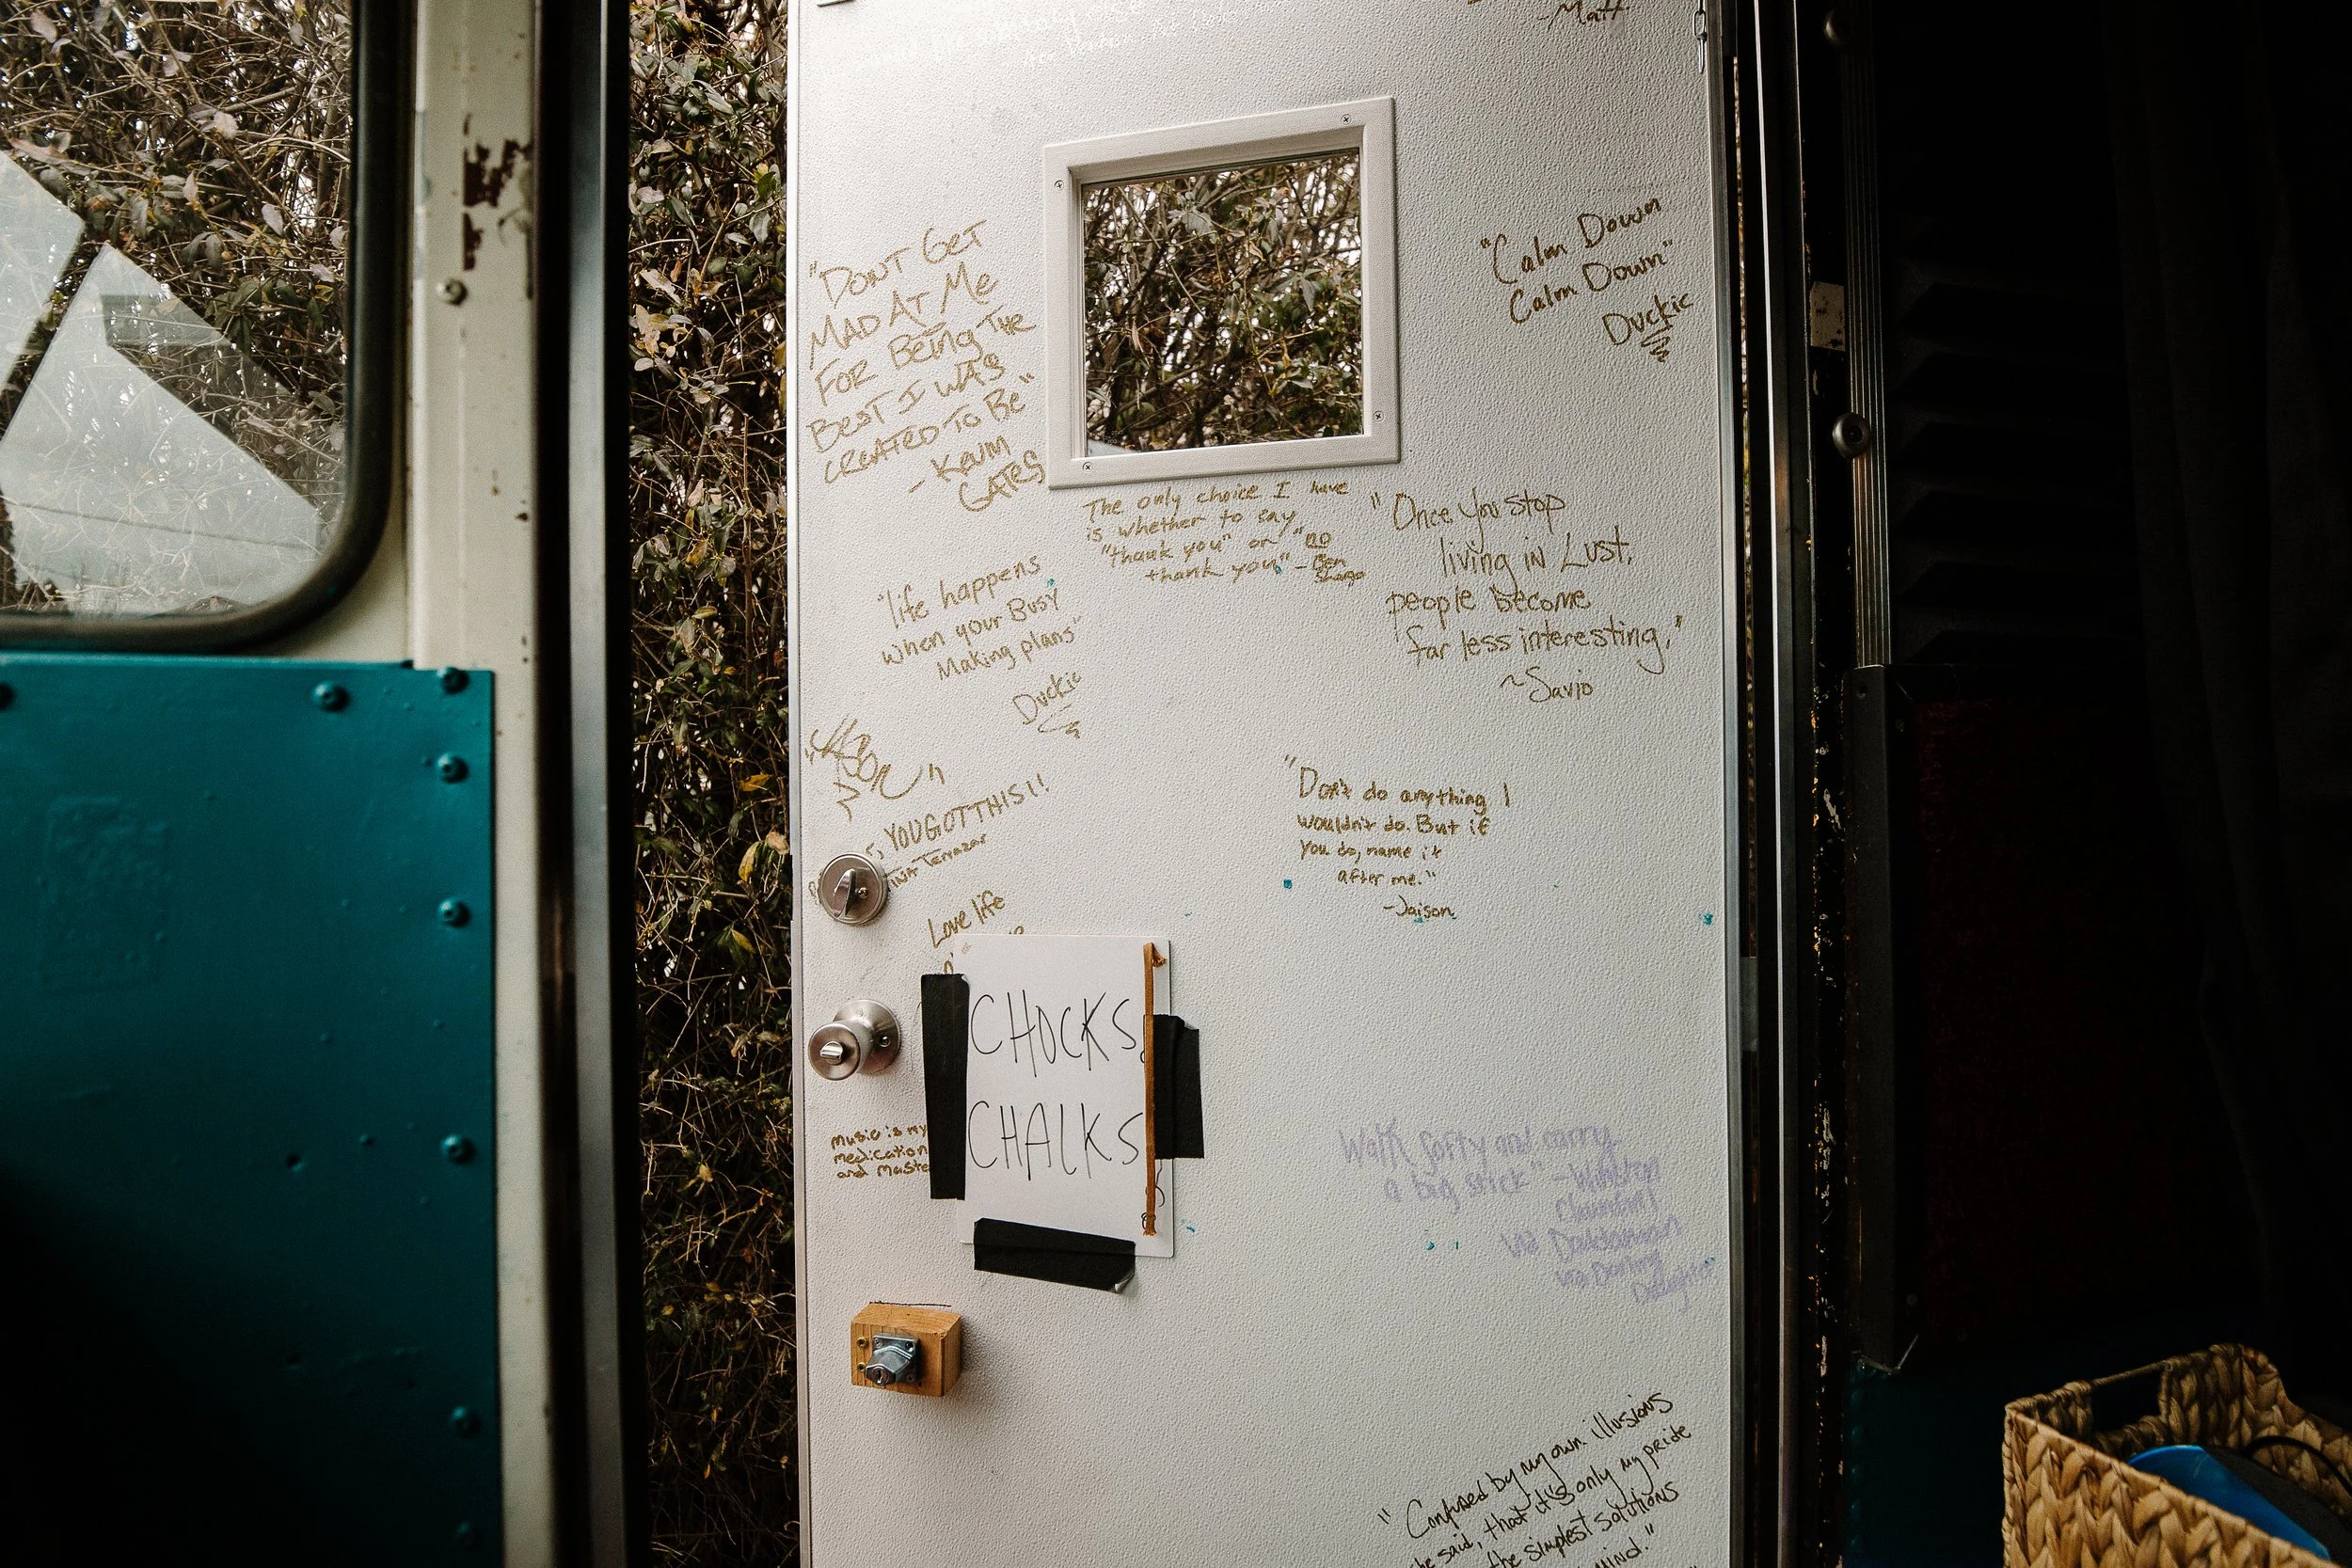 -Matt
"DONT GET
MAD AT ME
FOR BEING THE
BEST I WAS
CREATED TO BE"
- KEVIN
GATES
"Calm Down
Calm Down"
Duckie
The only choice I have
is whether to say
"thank you" or "no
thank you" - Ben
"Once you stop
living in Lust,
people become
far less interesting."
~Savio
"life happens
when your Busy
Making plans"
Duckie
YOU GOT THIS!!
"Don't do anything I
wouldn't do. But if
you do, name it
after me."
-Jaison
Love life
CHOCKS
CHALKS
music is my
medication
and
Walk softly and carry
a big stick" - Winston
Churchill
via
via Darling
Daughter
"Confused by my own illusions
he said, that it's only my pride
the simplest solutions
mind."